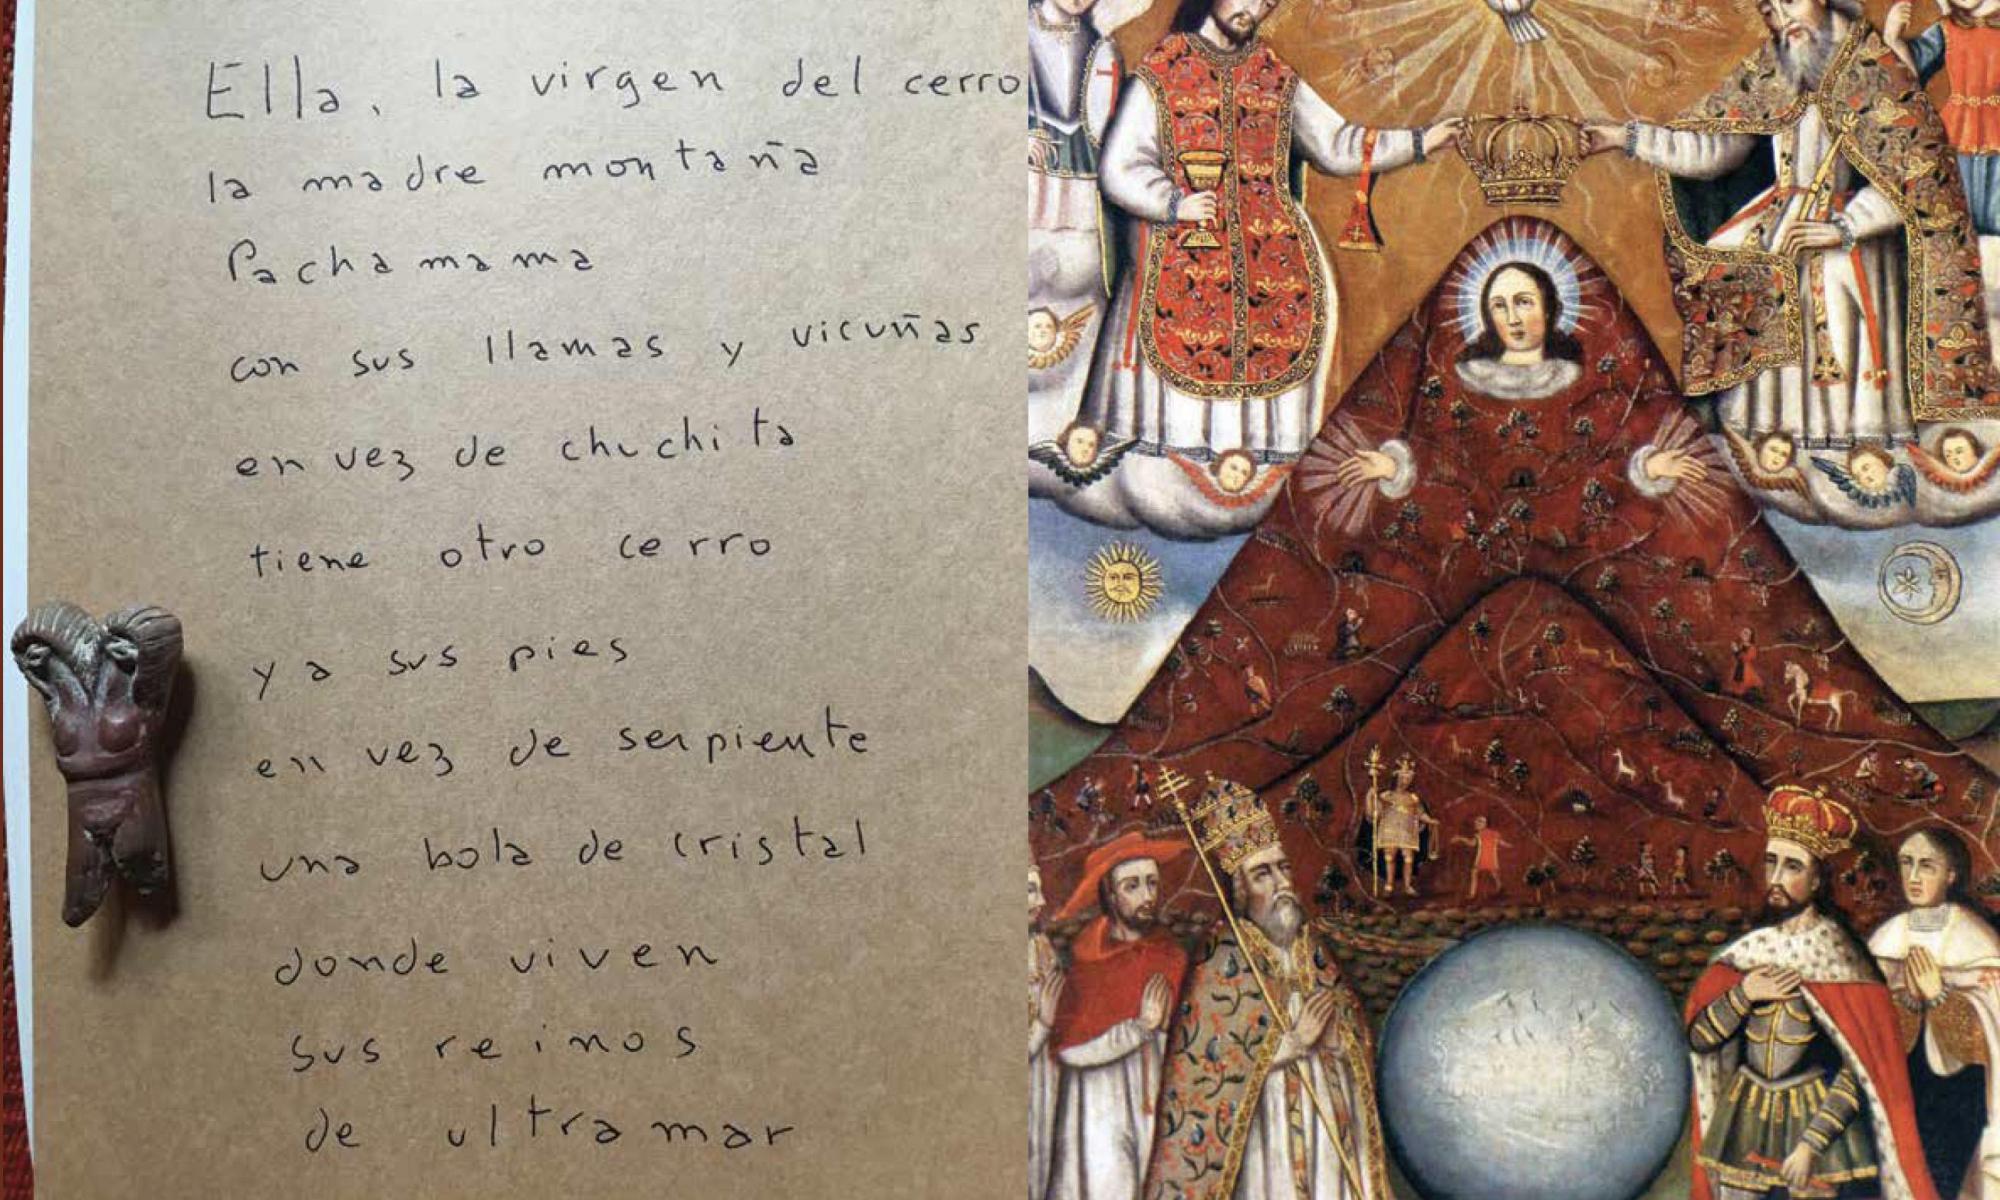 Ella, la virgen del cerro
la madre montaña
Pachamama
con sus llamas y vicuñas
en vez de chuchita
tiene otro cerro
y a sus pies
en vez de serpiente
una bola de cristal
donde viven
sus reinos
de ultramar